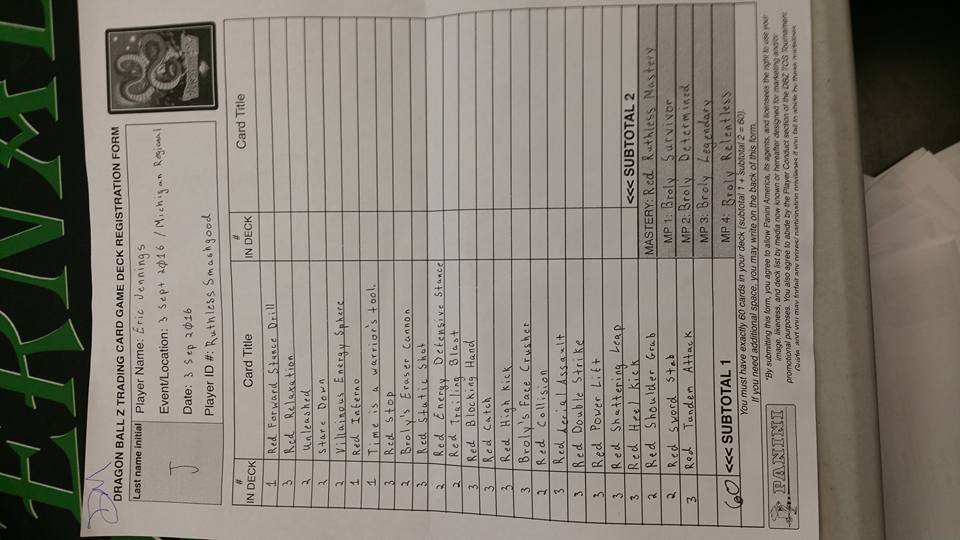 DRAGON BALL Z TRADING CARD GAME DECK REGISTRATION FORM
Last name initial
J
Player Name: Eric Jennings
Event/Location: 3 Sept 2016 / Michigan Regional
Date: 3 Sep 2016
Player ID #: Ruthless Smashgood
# IN DECK Card Title # IN DECK Card Title
1 Red Forward Stance Drill
3 Red Relaxation
2 Unleashed
2 Stare Down
2 Villainous Energy Sphere
1 Red Inferno
1 Time is a warrior's tool.
3 Red Stop
2 Broly's Eraser Cannon
3 Red Static Shot
2 Red Energy Defensive Stance
2 Red Trailing Blast
3 Red Blocking Hand
3 Red Catch
3 Red High Kick
3 Broly's Face Crusher
2 Red Collision
3 Red Aerial Assault
3 Red Double Strike
3 Red Power Lift
3 Red Shattering Leap
3 Red Heel Kick
2 Red Shoulder Grab
2 Red Sword Stab
3 Red Tandem Attack
60 <<< SUBTOTAL 1
<<< SUBTOTAL 2
MASTERY: Red Ruthless Mastery
MP 1: Broly Survivor
MP 2: Broly Determined
MP 3: Broly Legendary
MP 4: Broly Relentless
You must have exactly 60 cards in your deck (subtotal 1 + subtotal 2 = 60).
If you need additional space, you may write on the back of this form.
PANINI
*By submitting this form, you agree to allow Panini America, its agents, and licensees the right to use your
image, likeness, and deck list by media now known or hereafter designed for marketing and/or
promotional purposes. You also agree to abide by the Player Conduct section of the DBZ TCG Tournament
Guide, and you may forfeit any prizes/ participation privileges if you fail to abide by these guidelines.